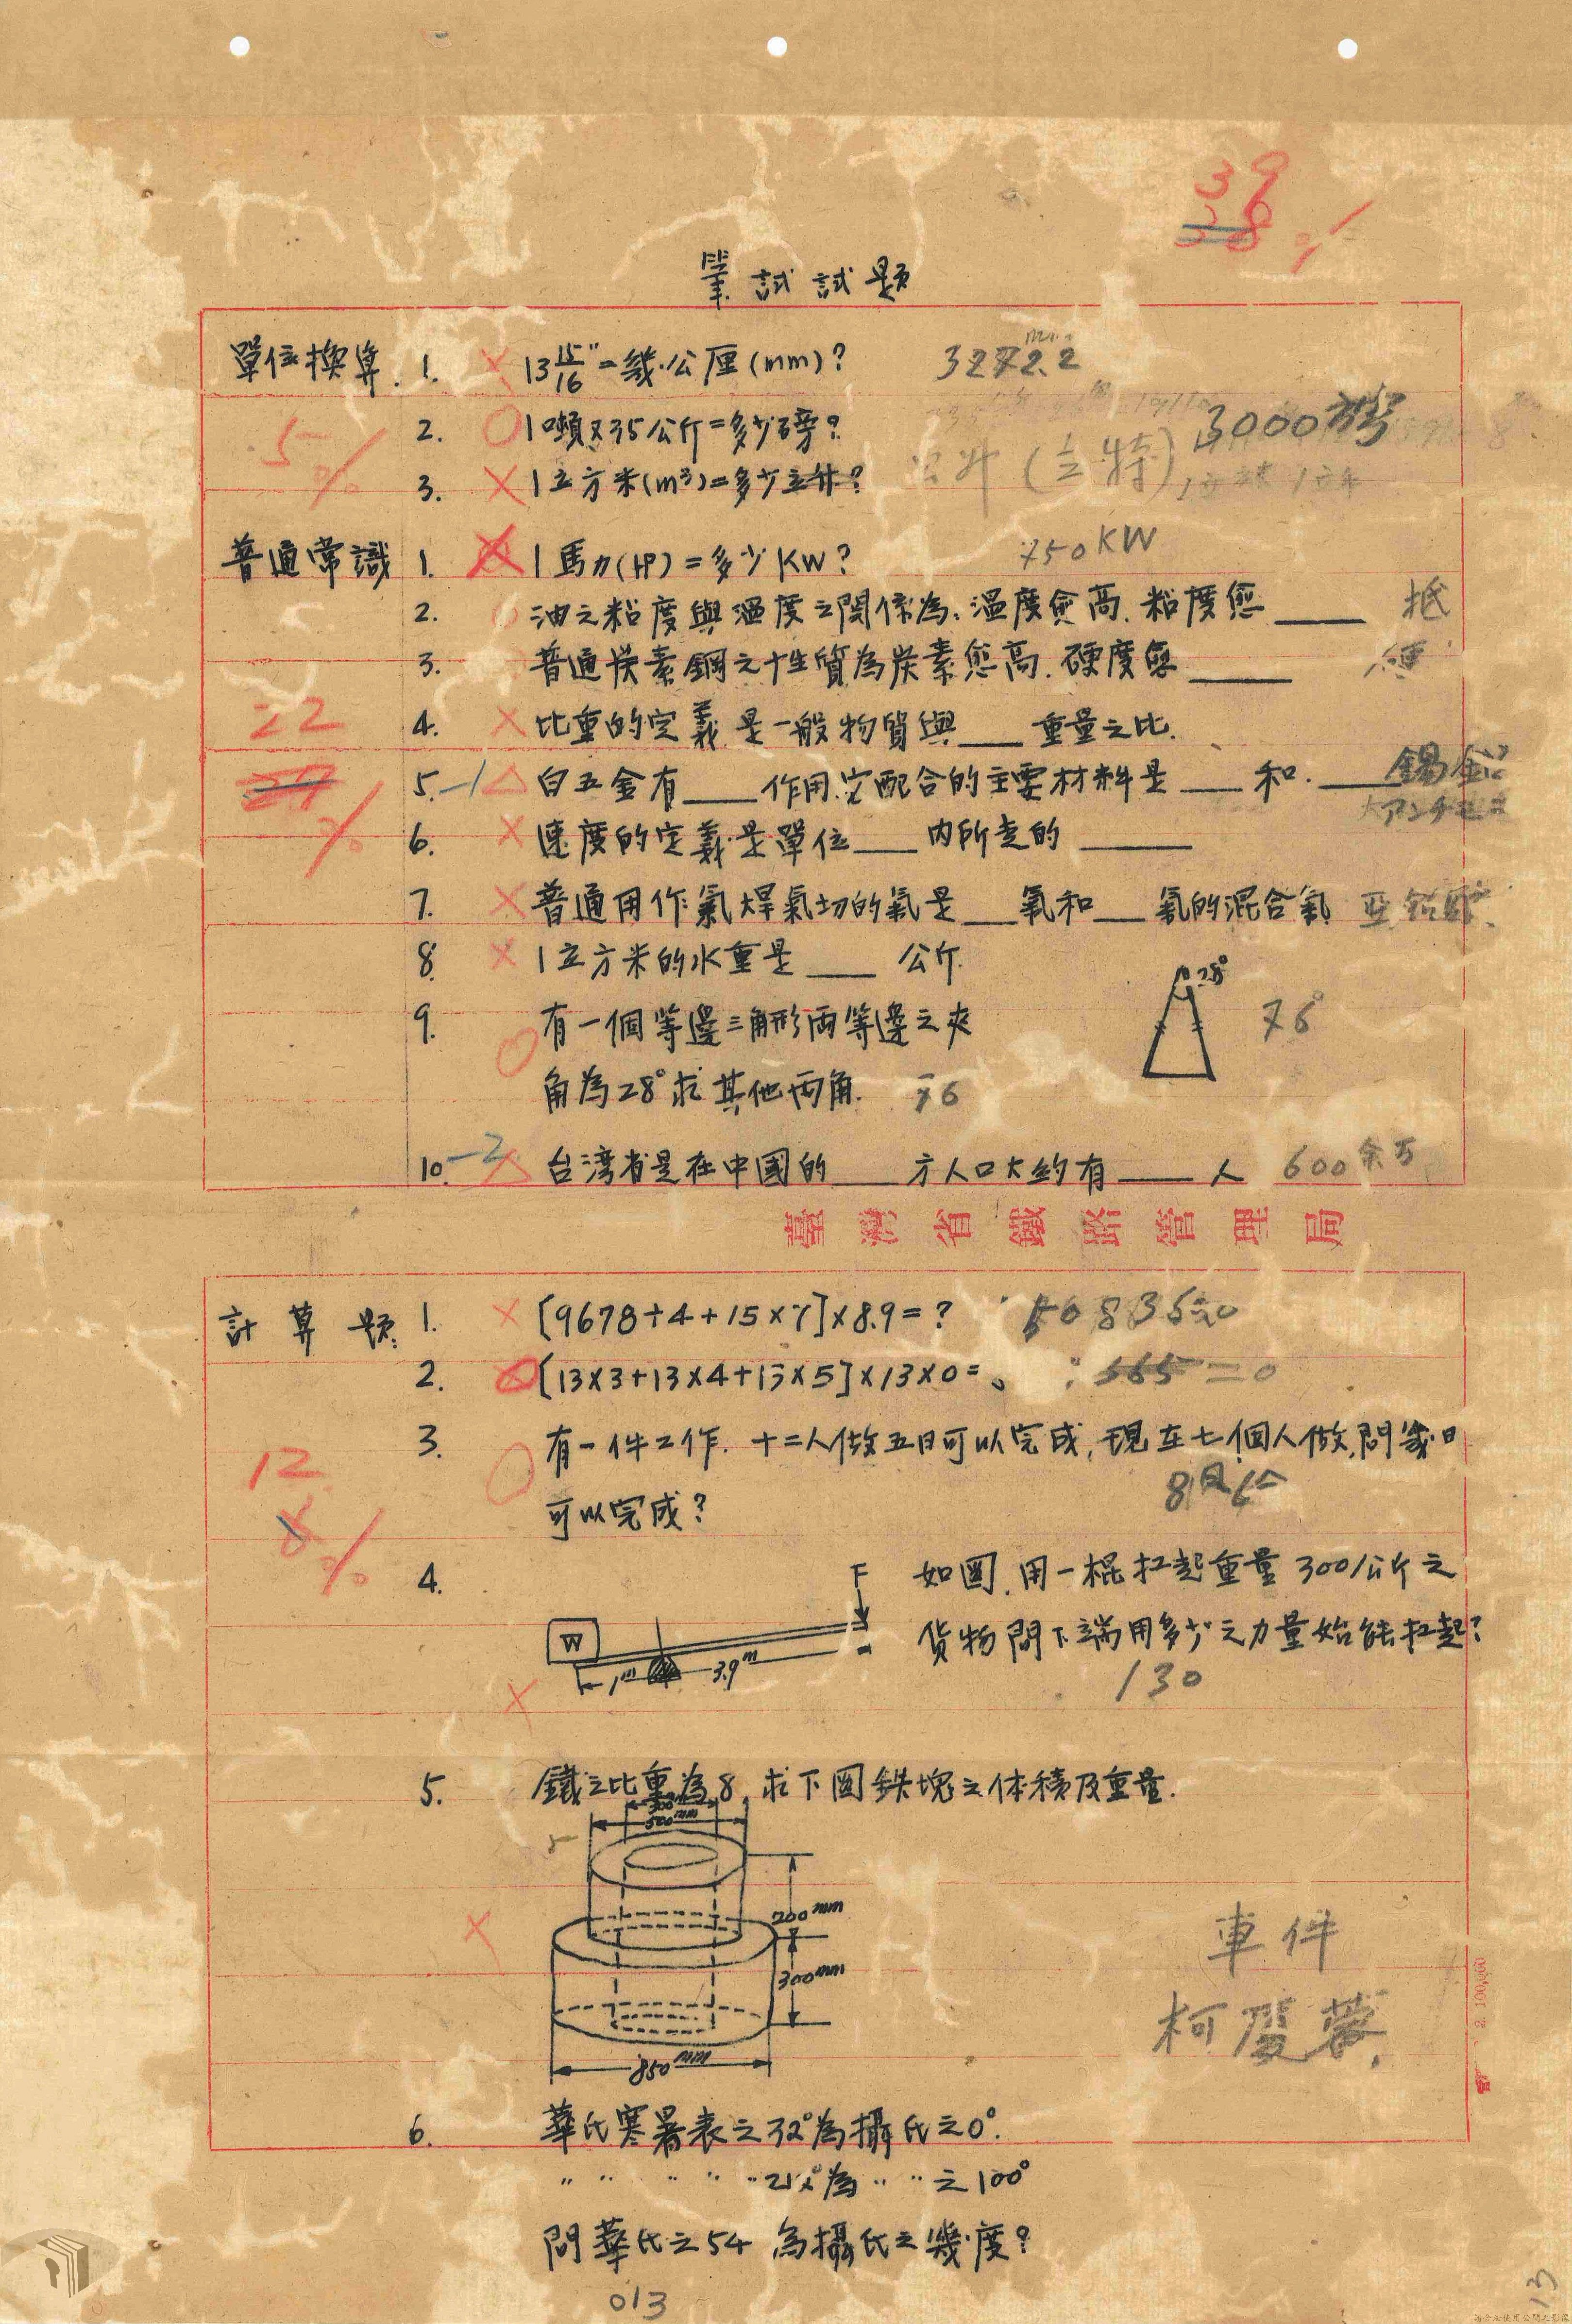 39
38 %
筆試試題
單位換算. 1. × 13 15/16" = 幾公厘(mm)? 3272.2
5% 2. ○ 1噸又35公斤=多少磅? 3000磅
3. × 1立方米(m³)=多少立升? 公升(立特)
普通常識 1. × 1馬力(HP)=多少KW? 750KW
2. ○ 油之粘度與溫度之關係為:溫度愈高.粘度愈____ 抵
3. 普通炭素鋼之性質為炭素愈高.硬度愈____ 硬
22 4. × 比重的定義是一般物質與___重量之比.
27 % 5. -1 △ 白五金有___作用.它配合的主要材料是___和.___ 錫 鉛
アンチモニ
6. × 速度的定義是單位___內所走的____
7. × 普通用作氣焊氣切的氣是__氧和__氣的混合氣
8. × 1立方米的水重是___公斤.
9. ○ 有一個等邊三角形兩等邊之夾
角為28°求其他兩角. 76
28°
76°
10. -2 △ 台灣省是在中國的___方人口大約有___人 600余万
臺灣省鐵路管理局
計算題. 1. × [9678+4+15×7]×8.9=?
2. [13×3+13×4+13×5]×13×0= 565 =0
3. ○ 有一件工作.十二人做五日可以完成,現在七個人做,問幾日
可以完成?
12
8 %
4. × 如圖.用一棍扛起重量300公斤之
貨物問下端用多少之力量始能扛起?
130
F
W
1m
3.9m
5. × 鐵之比重為8,求下圖鉄塊之体積及重量.
300
500mm
200mm
300mm
850mm
車件
2. 100,000
6. 華氏寒暑表之32°為攝氏之0°.
〃 〃 〃 〃 〃212°為〃 〃之100°
問華氏之54 為攝氏之幾度?
013
13